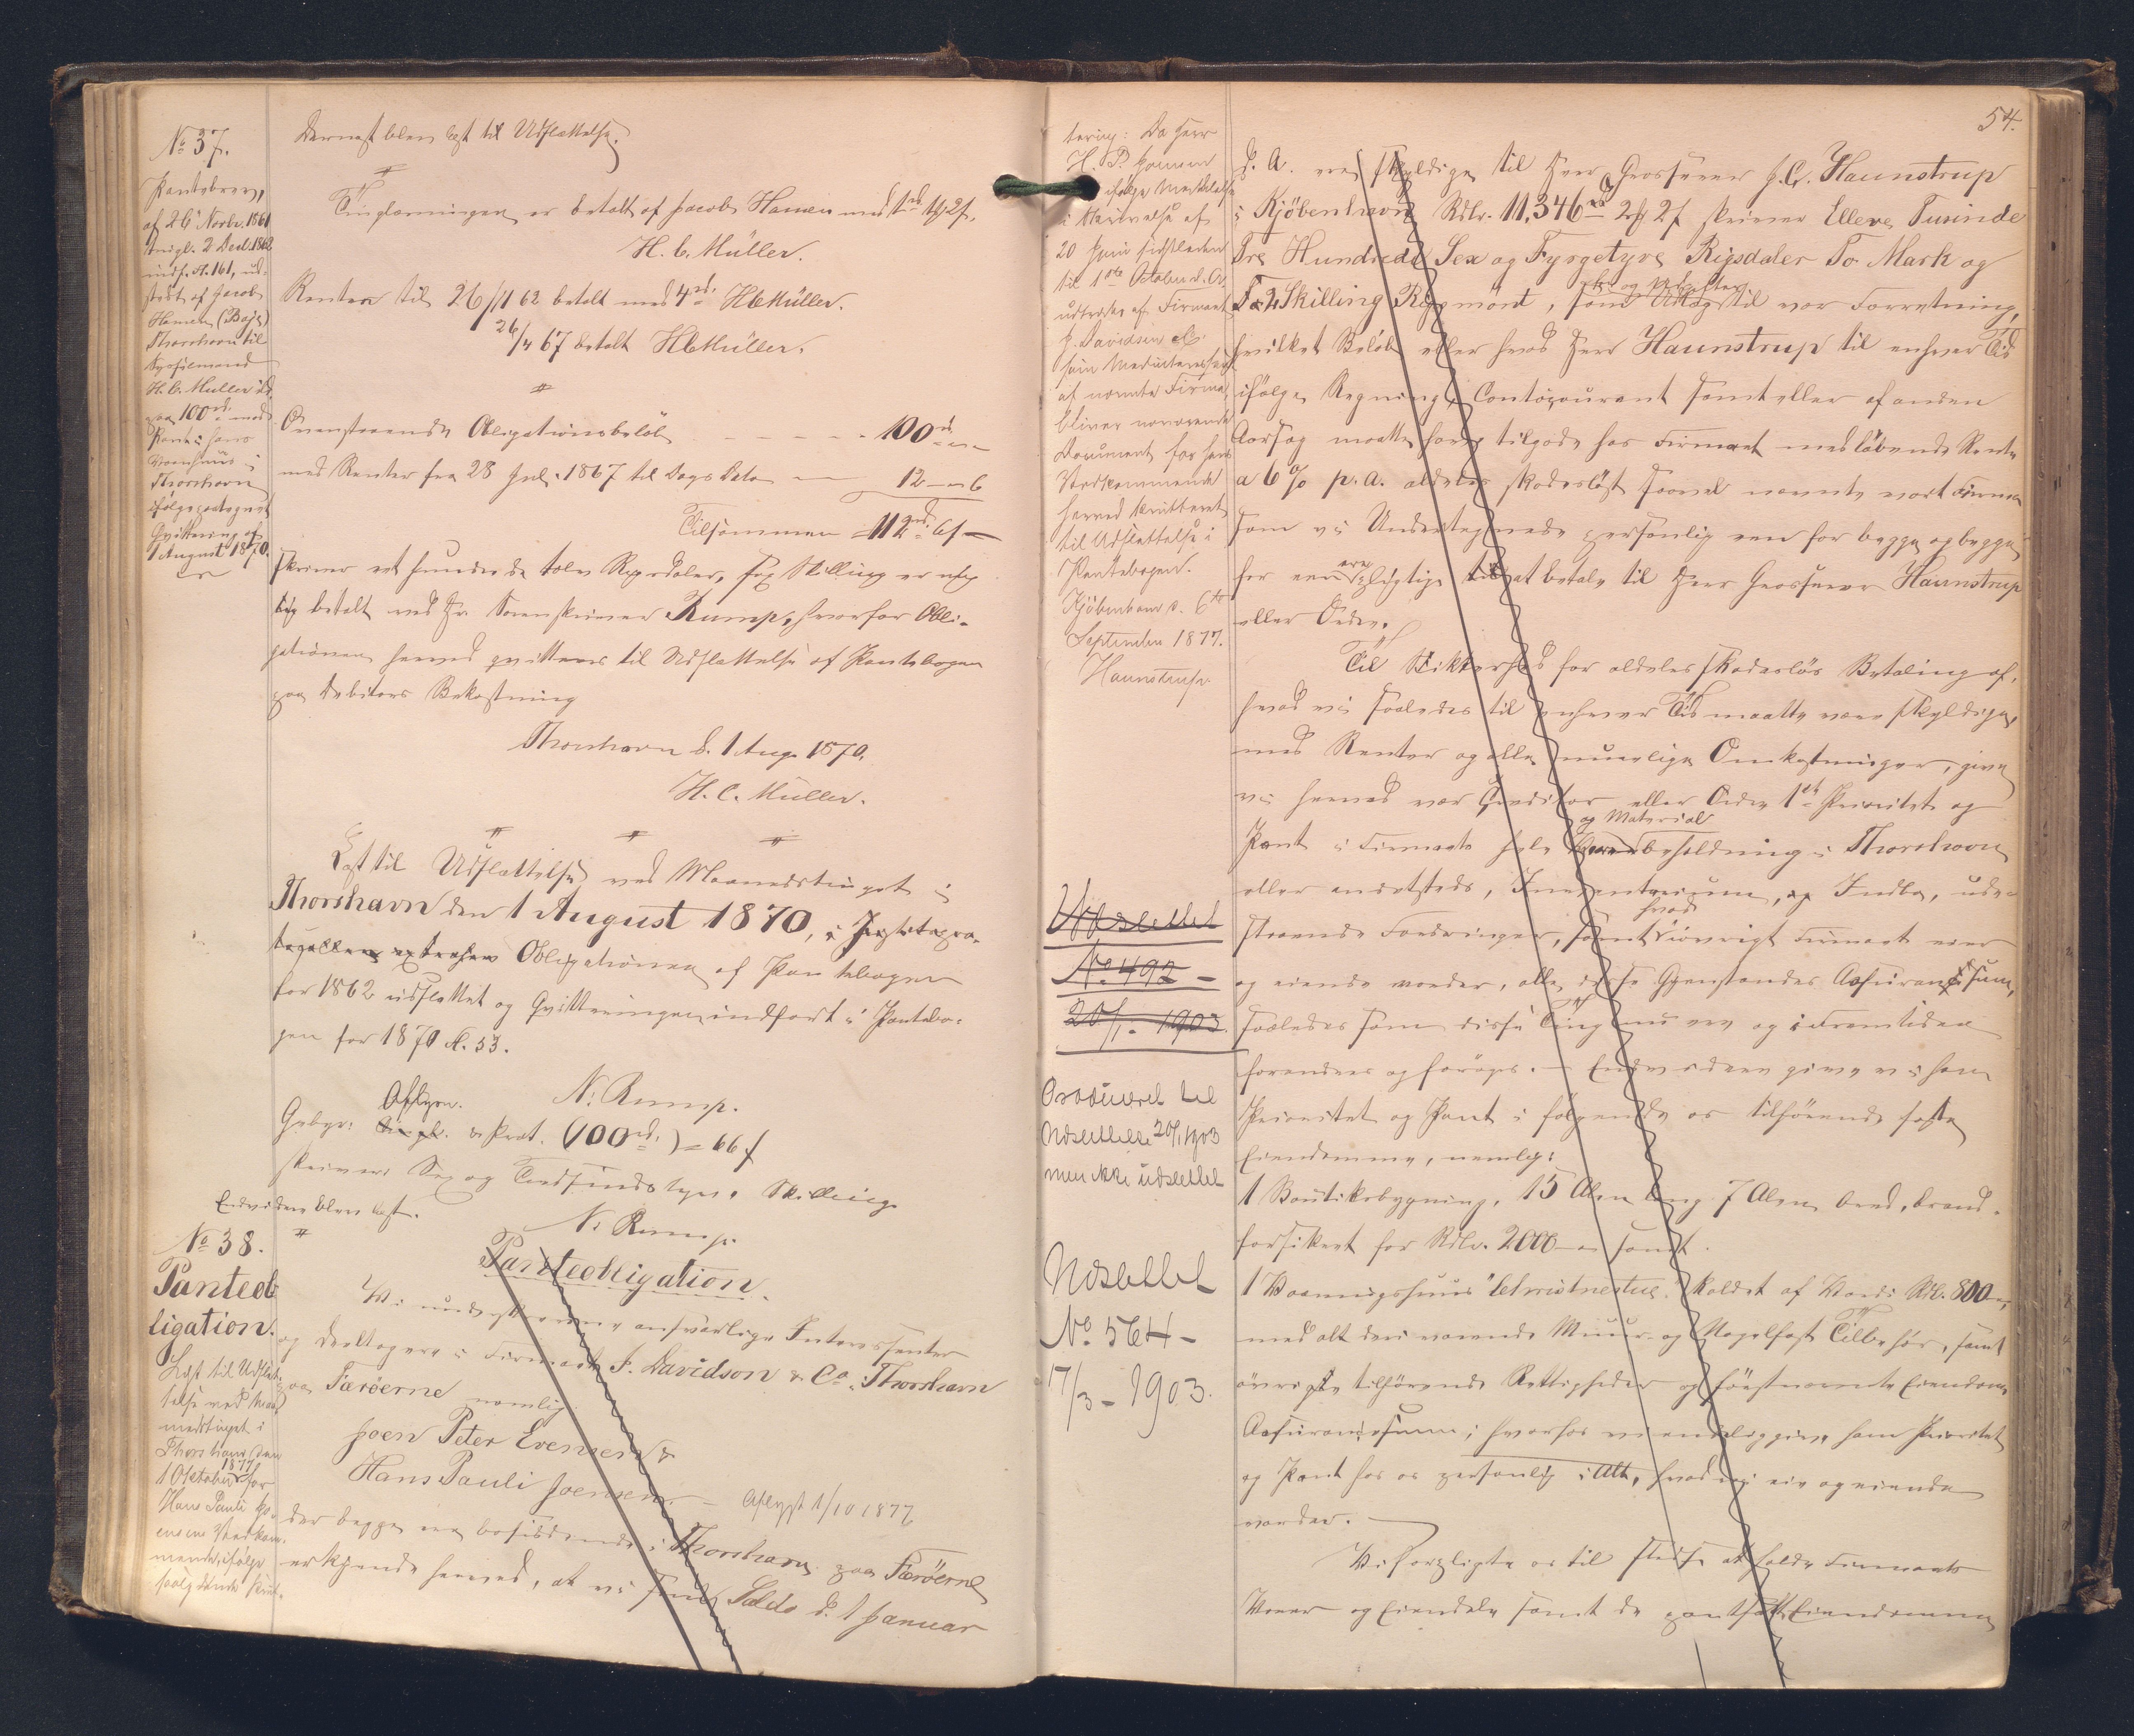 No 37.
Pantebrev,
af 26 Novbr. 1861
tingl. 2 Decbr. 1862
indf. fl. 161, ud-
stedt af Jacob
Hansen (Boje)
Thorshavn til
Sysselmand
H. C. Müller
paa 100 rd. mod
Pant i hans
Vaanhuus i
Thorshavn
ifølge paategnet
Qvittering af
1 August 1870.
Dernæst blev læst til Udslettelse.
Tinglæsningen er betalt af Jacob Hansen med
H. C. Müller.
Renter til 26/11 62 betalt med 4 rd. HCMüller.
26/4 67 betalt HCMüller.
Ovenstaaende Obligationsbeløb 100 rd
med Renter fra 28 Juli 1867 til Dags Dato 12 - 6
Tilsammen 112 rd 6 s
skriver eet hundrede tolv Rigsdaler, sex Skilling er rig-
tig betalt ved Hr. Sorenskriver Rump, hvorfor Obli-
gationen herved qvitteres til Udslettelse af Pantebogen
paa Debitors Bekostning
Thorshavn d. 1 Aug. 1870.
H. C. Müller.
Læst til Udslettelse ved Maanedstinget i
Thorshavn den 1 August 1870, i Justitspro-
tocollen extraheret Obligationen af Pantebogen
for 1862 udslettet og Qvitteringen indført i Pantebo-
gen for 1870 fl. 53.
N. Rump.
Gebyr: Aflysn. & Prot. (100 rd.) = 66 s
skriver Sex og Tredsindstyve Skilling
N. Rump.
Endvidere blev læst.
No 38.
Panteob
ligation.
Læst til Udslet-
telse ved Maa-
nedstinget i
Thorshavn den
1 October 1877 for
Hans Pauli Jo-
ensens Vedkom-
mende, ifølge
saalydende Kvit-
Panteobligation.
Vi underskrevne ansvarlige Interessenter
og Deeltagere i Firmaet J. Davidson & Co. i Thorshavn
paa Færöerne nemlig
Joen Peter Evensen &
Hans Pauli Joensen - Aflyst 1/10 1877
der begge ere bosiddende i Thorshavn paa Færöerne
erkjende herved, at vi som Saldo d. 1 Januar
tering: Da Herr
H. P. Joensen
ifølge Meddelelse
i Skrivelse af
20 Juni sidstleden
til 1ste October d. A.
udtræder af Firmaet
J. Davidsen & Co.
som Medinteressent
af nævnte Firma,
bliver nærværende
Document for hans
Vedkommende
herved kvitteret
til Udslettelse i
Pantebogen.
Kjöbenhavn d. 6te
September 1877.
Haunstrup.
Udslettet
No 492 -
20/1 - 1903.
Produceret til
Udslettelse 20/1 1903
men ikke udslettet
Udslettet
No 564 -
17/3 - 1903.
54.
d. A. ere skyldige til Herr Grosserer J. C. Haunstrup
i Kjöbenhavn Rdlr. 11,346 rd 2 mk 2 s skriver Elleve Tusinde
Tre Hundrede Sex og Fyrgetyve Rigsdaler To Mark og
To Skilling Rigsmönt, som til vor Forretning,
hvilket Beløb eller hvad Herr Haunstrup til enhver Tid
ifølge Regning, Contocourant samt eller af anden
Aarsag maatte have tilgode hos Firmaet med løbende Rente
a 6 % p. a. aldeles skadesløst saavel nævnte vort Firma
som vi Undertegnede personlig een for begge og begge
for een ere pligtige til at betale til Herr Grosserer Haunstrup
eller Ordre.
Til Sikkerhed for aldeles skadesløs Betaling af,
hvad vi saaledes til enhver Tid maatte være skyldige,
med Renter og alle muelige Omkostninger, give
vi herved vor Creditor eller Ordre 1ste Prioritet og
og Material
Pant i Firmaets hele Varebeholdning i Thorshavn
eller andetsteds, Inventarium, og Indbo, ude-
staaende Fordringer, samt hvad iøvrigt Firmaet eier
og eiende vorder, alle disse Gjenstandes Assurancesum,
saaledes som disse Ting nu ere og i Fremtiden
forandres og forøges. - Endvidere give vi ham
Prioritet og Pant i følgende os tilhørende faste
Eiendomme, nemlig:
1 Boutiksbygning, 15 Alen lang 7 Alen bred, brand-
forsikret for Rdlr. 2000 - samt
1 Vaaningshuus "Christnestue" kaldet af Værdi Rdl. 800,
med alt deri værende Muur- og Nagelfast Tilbehør, samt
øvrigt tilhørende Rettigheder og førstnævnte Eiendoms
Assurancesum; hvorhos vi endelig give ham Prioritet
og Pant hos os personlig i Alt, hvad vi eie og eiende
vorder.
Vi forpligte os til stedse at holde Firmaets
Varer og Eiendele samt de pantsatte Eiendomme